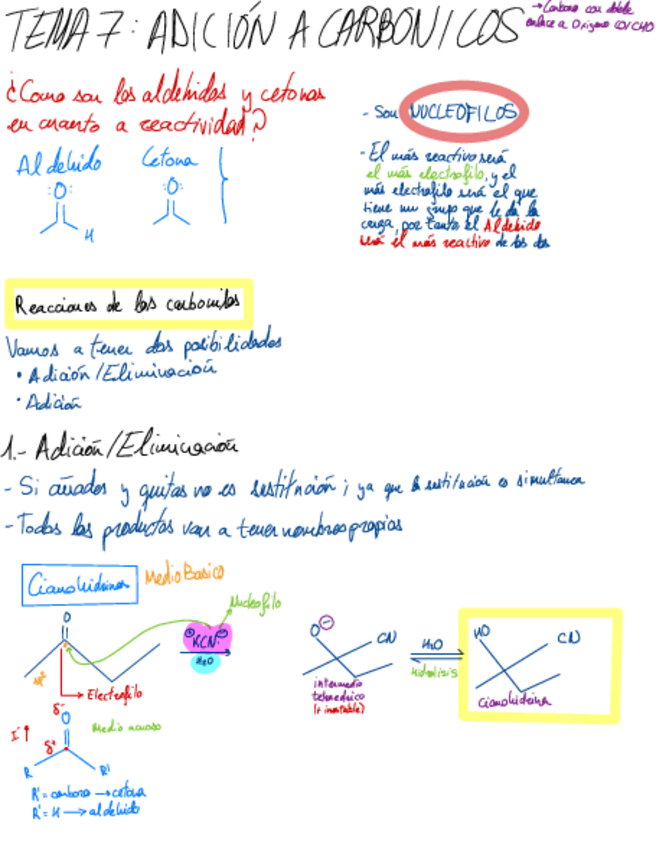 TEMA 7: ADICIÓN A CARBONILOS
→ Carbono con doble
enlace a Oxígeno CO/CHO
¿Como son los aldehidos y cetonas
en cuanto a reactividad?
- Son NUCLEOFILOS
Aldehido
Cetona
:O:
:O:
H
- El más reactivo será
el más electrofilo, y el
más electrofilo será el que
tiene un grupo que le da la
carga, por tanto el Aldehido
será el más reactivo de los dos
Reacciones de los carbonilos
Vamos a tener dos posibilidades
• Adición/Eliminación
• Adición
1.- Adición/Eliminación
- Si añades y quitas no es sustitución; ya que la sustitución es simultanea
- Todos los productos van a tener nombres propios
Cianohidrina
Medio Basico
Nucleofilo
O
⊕KCN⊖
H₂O
sp²
→ Electrofilo
O⊖
CN
intermedio
tetraédrico
(+ inestable)
H₂O
Hidrólisis
HO
CN
cianohidrina
δ-
O
I-↑
δ+
Medio acuoso
R
R'
R' = carbono → cetona
R' = H → aldehido